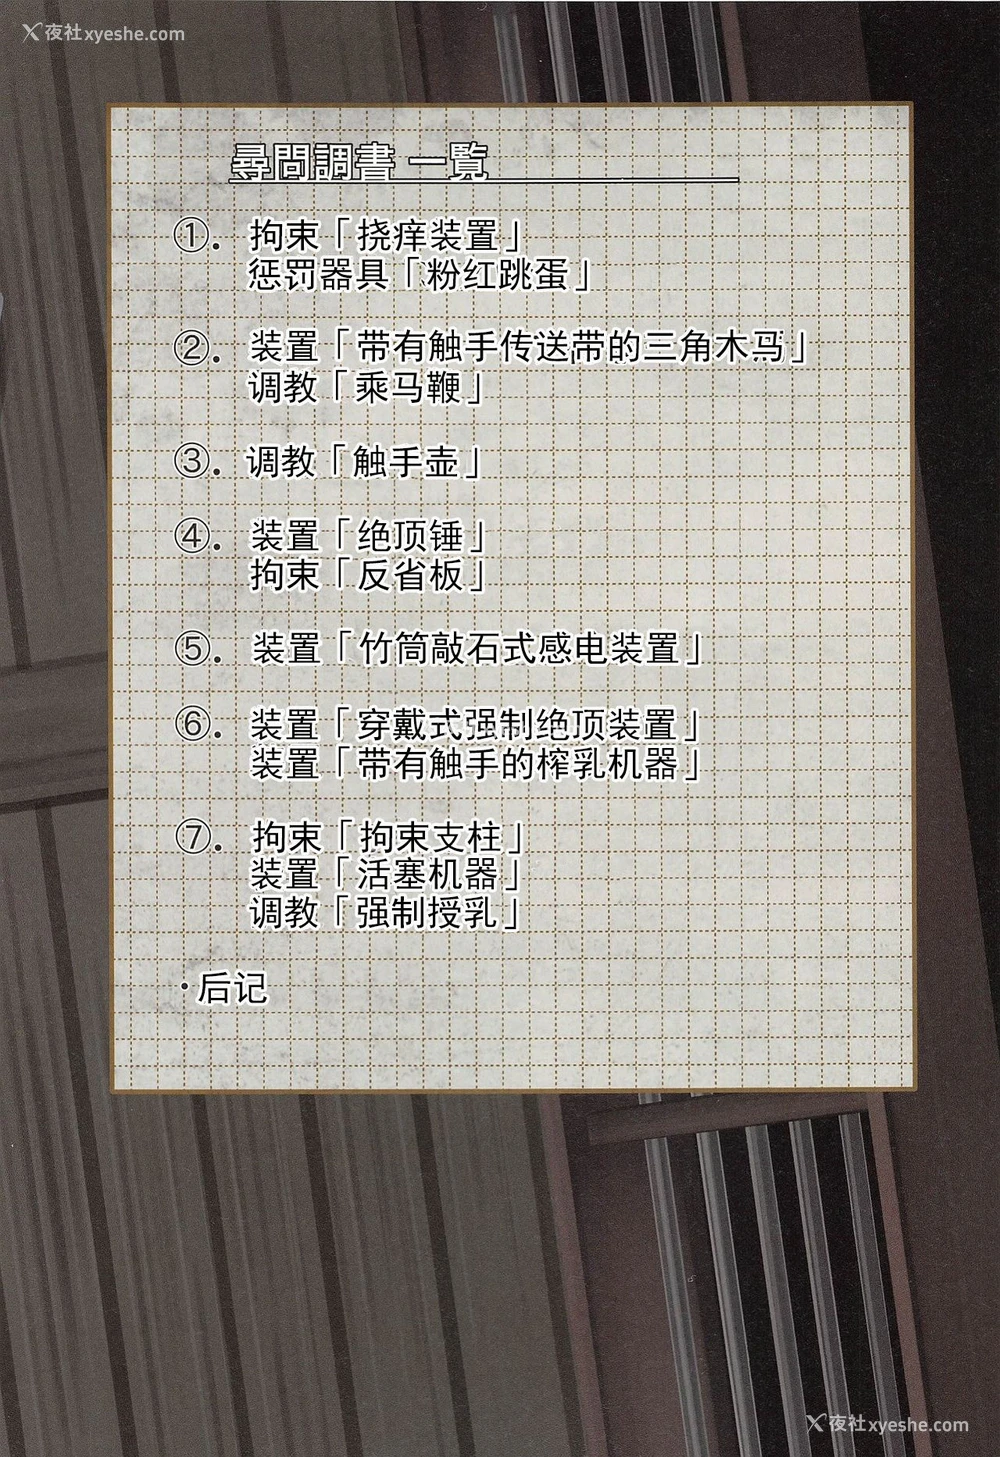 夜社xyeshe.com
尋問調書 一覧
①. 拘束「挠痒装置」
惩罚器具「粉红跳蛋」
②. 装置「带有触手传送带的三角木马」
调教「乘马鞭」
③. 调教「触手壶」
④. 装置「绝顶锤」
拘束「反省板」
⑤. 装置「竹筒敲石式感电装置」
⑥. 装置「穿戴式强制绝顶装置」
装置「带有触手的榨乳机器」
⑦. 拘束「拘束支柱」
装置「活塞机器」
调教「强制授乳」
・后记
夜社xyeshe.com